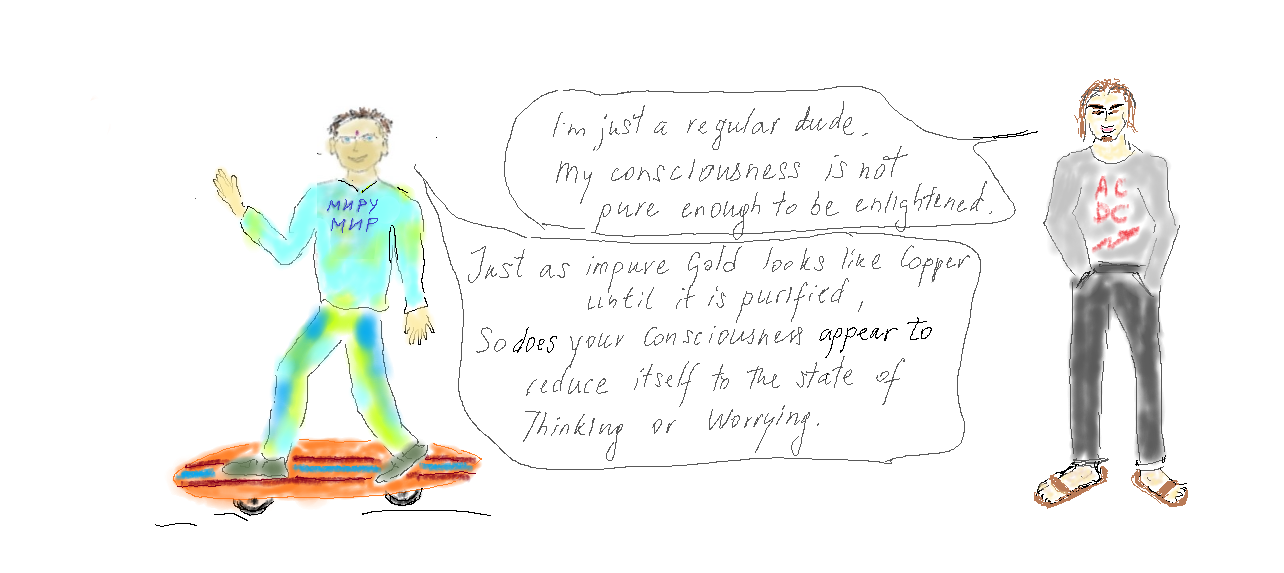 I'm just a regular dude.
My consciousness is not
pure enough to be enlightened.
Just as impure Gold looks like Copper
until it is purified,
So does your Consciousness appear to
reduce itself to the state of
Thinking or Worrying.
МИРУ
МИР
AC
DC